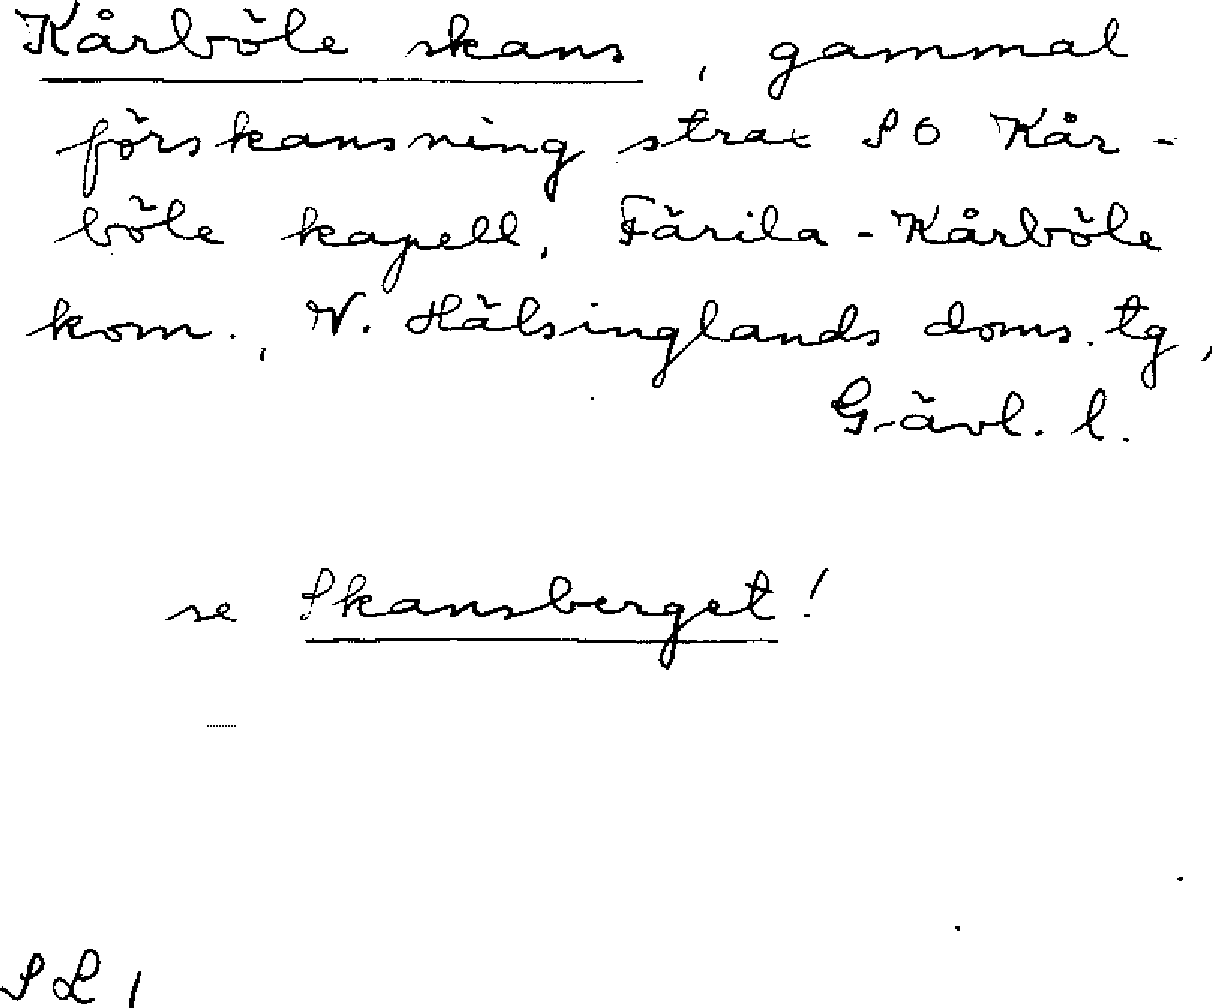 Kårböle skans, gammal
förskansning strax SO Kår-
böle kapell, Färila-Kårböle
kom., V. Hälsinglands doms.tg,
Gävl. l.
se Skansberget!